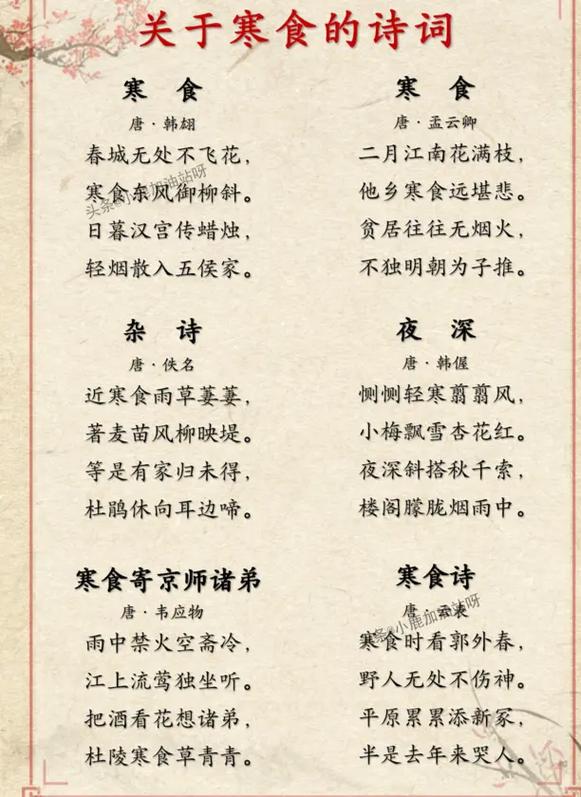 关于寒食的诗词
寒 食
唐·韩翃
春城无处不飞花，
寒食东风御柳斜。
日暮汉宫传蜡烛，
轻烟散入五侯家。
寒 食
唐·孟云卿
二月江南花满枝，
他乡寒食远堪悲。
贫居往往无烟火，
不独明朝为子推。
杂 诗
唐·佚名
近寒食雨草萋萋，
著麦苗风柳映堤。
等是有家归未得，
杜鹃休向耳边啼。
夜 深
唐·韩偓
恻恻轻寒翦翦风，
小梅飘雪杏花红。
夜深斜搭秋千索，
楼阁朦胧烟雨中。
寒食寄京师诸弟
唐·韦应物
雨中禁火空斋冷，
江上流莺独坐听。
把酒看花想诸弟，
杜陵寒食草青青。
寒食诗
唐·云表
寒食时看郭外春，
野人无处不伤神。
平原累累添新冢，
半是去年来哭人。
头条@小鹿加油站呀
头条@小鹿加油站呀